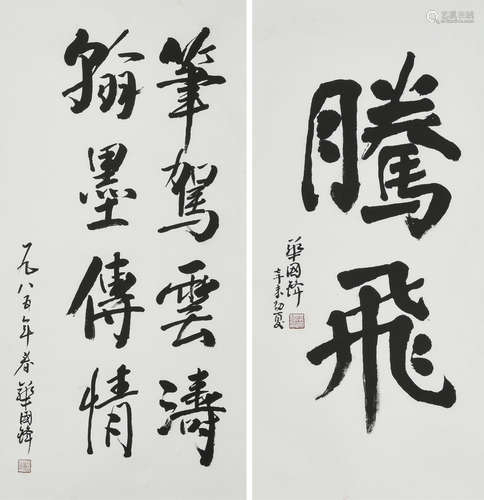 筆駕雲濤
翰墨傳情
一九八五年春 華國鋒
騰飛
華國鋒
辛未初夏